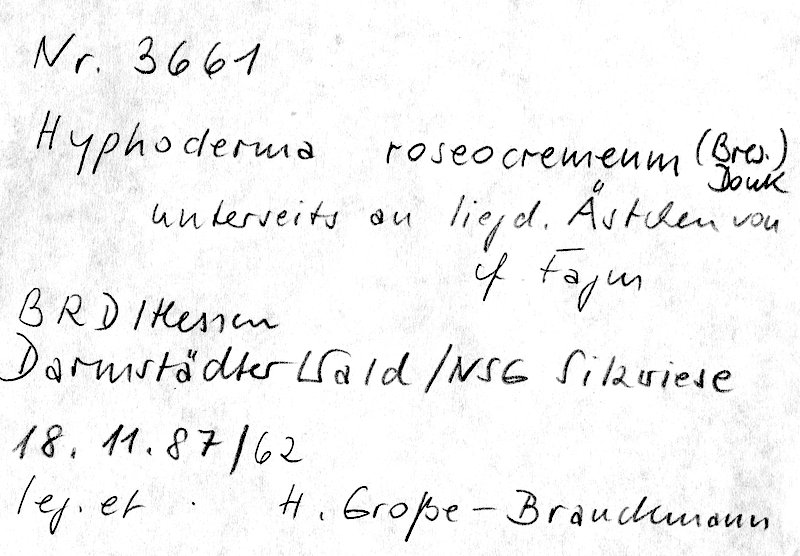 Nr. 3661
Hyphoderma roseocremeum (Bres.) Donk
unterseits an liegd. Ästchen von
cf Fagus
BRD/Hessen
Darmstädter Wald/NSG Silzwiese
18.11.87/62
leg. et. H. Große-Brauckmann